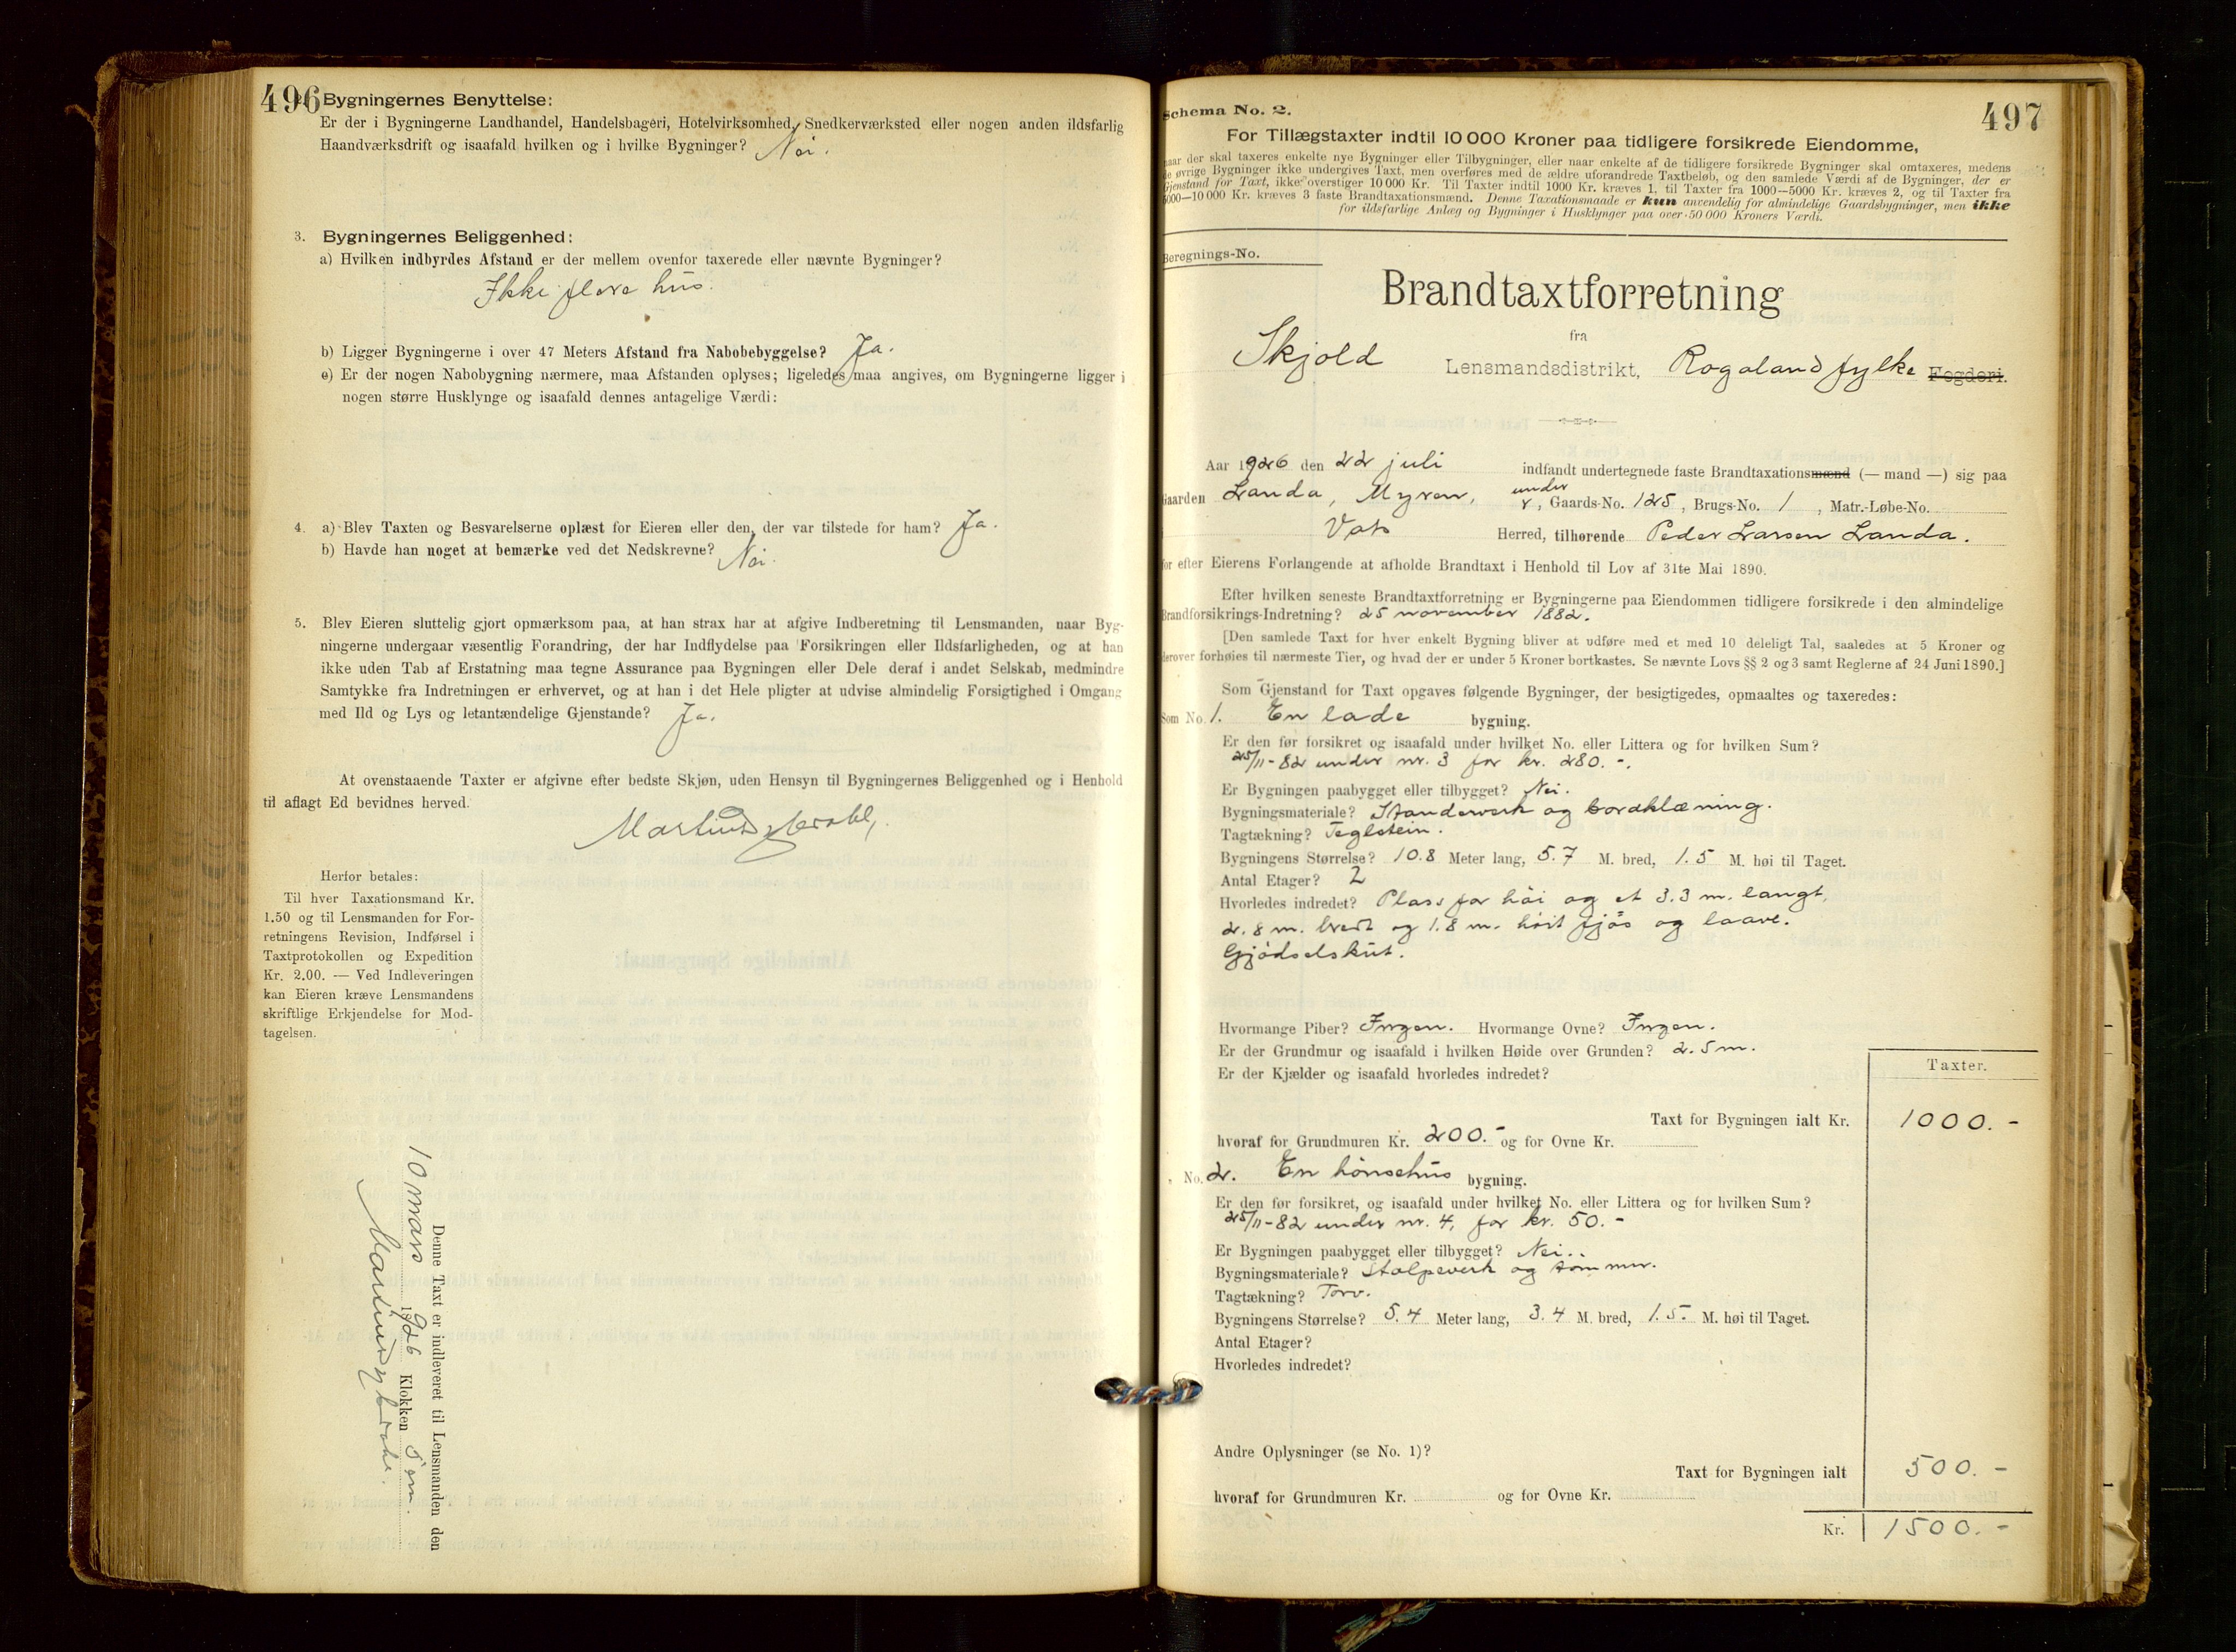 496 Bygningernes Benyttelse:
Er der i Bygningerne Landhandel, Handelsbageri, Hotelvirksomhed, Snedkerværksted eller nogen anden ildsfarlig
Haandværksdrift og isaafald hvilken og i hvilke Bygninger? Nei.
3. Bygningernes Beliggenhed:
a) Hvilken indbyrdes Afstand er der mellem ovenfor taxerede eller nævnte Bygninger?
Ikke flere hus.
b) Ligger Bygningerne i over 47 Meters Afstand fra Nabobebyggelse? Ja.
c) Er der nogen Nabobygning nærmere, maa Afstanden oplyses; ligeledes maa angives, om Bygningerne ligger i
nogen større Husklynge og isaafald dennes antagelige Værdi:
4. a) Blev Taxten og Besvarelserne oplæst for Eieren eller den, der var tilstede for ham? Ja.
b) Havde han noget at bemærke ved det Nedskrevne? Nei.
5. Blev Eieren sluttelig gjort opmærksom paa, at han strax har at afgive Indberetning til Lensmanden, naar Byg-
ningerne undergaar væsentlig Forandring, der har Indflydelse paa Forsikringen eller Ildsfarligheden, og at han
ikke uden Tab af Erstatning maa tegne Assurance paa Bygningen eller Dele deraf i andet Selskab, medmindre
Samtykke fra Indretningen er erhvervet, og at han i det Hele pligter at udvise almindelig Forsigtighed i Omgang
med Ild og Lys og letantændelige Gjenstande? Ja.
At ovenstaaende Taxter er afgivne efter bedste Skjøn, uden Hensyn til Bygningernes Beliggenhed og i Henhold
til aflagt Ed bevidnes herved.
Herfor betales:
Til hver Taxationsmand Kr.
1.50 og til Lensmanden for For-
retningens Revision, Indførsel i
Taxtprotokollen og Expedition
Kr. 2.00. — Ved Indleveringen
kan Eieren kræve Lensmandens
skriftlige Erkjendelse for Mod-
tagelsen.
Denne Taxt er indleveret til Lensmanden den
10 mars 1926 Klokken
Schema No. 2.
497
For Tillægstaxter indtil 10 000 Kroner paa tidligere forsikrede Eiendomme,
naar der skal taxeres enkelte nye Bygninger eller Tilbygninger, eller naar enkelte af de tidligere forsikrede Bygninger skal omtaxeres, medens
de øvrige Bygninger ikke undergives Taxt, men overføres med de ældre uforandrede Taxtbeløb, og den samlede Værdi af de Bygninger, der er
Gjenstand for Taxt, ikke overstiger 10 000 Kr. Til Taxter indtil 1000 Kr. kræves 1, til Taxter fra 1000—5000 Kr. kræves 2, og til Taxter fra
5000—10 000 Kr. kræves 3 faste Brandtaxationsmænd. Denne Taxationsmaade er kun anvendelig for almindelige Gaardsbygninger, men ikke
for ildsfarlige Anlæg og Bygninger i Husklynger paa over 50 000 Kroners Værdi.
Beregnings-No.
Brandtaxtforretning
fra
Skjold Lensmandsdistrikt, Rogaland fylke Fogderi.
Aar 1926 den 22 juli indfandt undertegnede faste Brandtaxationsmænd (— mand —) sig paa
Gaarden Landa, Myren, under, Gaards-No. 125, Brugs-No. 1, Matr.-Løbe-No.
Vats Herred, tilhørende Peder Larsen Landa.
for efter Eierens Forlangende at afholde Brandtaxt i Henhold til Lov af 31te Mai 1890.
Efter hvilken seneste Brandtaxtforretning er Bygningerne paa Eiendommen tidligere forsikrede i den almindelige
Brandforsikrings-Indretning? 25 november 1882.
[Den samlede Taxt for hver enkelt Bygning bliver at udføre med et med 10 deleligt Tal, saaledes at 5 Kroner og
derover forhøies til nærmeste Tier, og hvad der er under 5 Kroner bortkastes. Se nævnte Lovs §§ 2 og 3 samt Reglerne af 24 Juni 1890.]
Som Gjenstand for Taxt opgaves følgende Bygninger, der besigtigedes, opmaaltes og taxeredes:
Som No. 1. En lade bygning.
Er den før forsikret og isaafald under hvilket No. eller Littera og for hvilken Sum?
25/11-82 under nr. 3 for kr. 280.-.
Er Bygningen paabygget eller tilbygget? Nei.
Bygningsmateriale? Standerverk og bordklæning.
Tagtækning? Teglstein.
Bygningens Størrelse? 10.8 Meter lang, 5.7 M. bred, 1.5 M. høi til Taget.
Antal Etager? 2
Hvorledes indredet? Plass for höi og et 3.3 m. langt,
2.8 m. bredt og 1.8 m. höit fjös og laave.
Gjödselskut.
Hvormange Piber? Ingen. Hvormange Ovne? Ingen.
Er der Grundmur og isaafald i hvilken Høide over Grunden? 2.5 m.
Er der Kjælder og isaafald hvorledes indredet?
Taxter.
Taxt for Bygningen ialt Kr. 1000.-
hvoraf for Grundmuren Kr. 200.- og for Ovne Kr.
, No. 2. En hönsehus bygning.
Er den før forsikret, og isaafald under hvilket No. eller Littera og for hvilken Sum?
25/11-82 under nr. 4, for kr. 50.-
Er Bygningen paabygget eller tilbygget? Nei..
Bygningsmateriale? Stolpeverk og tømmer.
Tagtækning? Torv.
Bygningens Størrelse? 5.4 Meter lang, 3.4 M. bred, 1.5. M. høi til Taget.
Antal Etager?
Hvorledes indredet?
Andre Oplysninger (se No. 1)?
Taxt for Bygningen ialt 500.-
hvoraf for Grundmuren Kr. og for Ovne Kr.
Kr. 1500.-